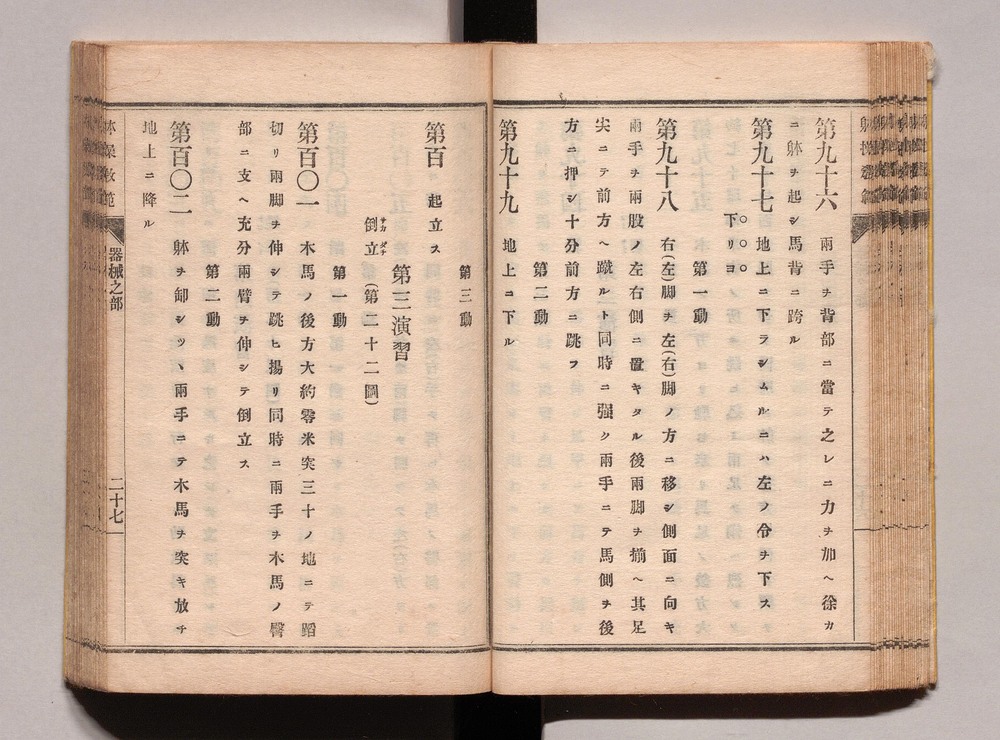 第九十六 兩手ヲ背部ニ當テ之レニ力ヲ加ヘ徐カ
ニ躰ヲ起シ馬背ニ跨ル
第九十七 地上ニ下ラシムルニハ左ノ令ヲ下ス
下リヨ
第一動
第九十八 右(左)脚ヲ左(右)脚ノ方ニ移シ側面ニ向キ
兩手ヲ兩股ノ左右側ニ置キタル後兩脚ヲ揃ヘ其足
尖ニテ前方ヘ蹴ルト同時ニ强ク兩手ニテ馬側ヲ後
方ニ押シ十分前方ニ跳フ
第二動
第九十九 地上ニ下ル
第三動
第百 起立ス
第三演習
倒立(第二十二圖)
サカダチ
第一動
第百〇一 木馬ノ後方大約零米突三十ノ地ニテ蹈
切リ兩脚ヲ伸シテ跳ヒ揚リ同時ニ兩手ヲ木馬ノ臀
部ニ支ヘ充分兩臂ヲ伸シテ倒立ス
第二動
第百〇二 躰ヲ卸シツヽ兩手ニテ木馬ヲ突キ放チ
地上ニ降ル
体操教範
器械之部
二十七